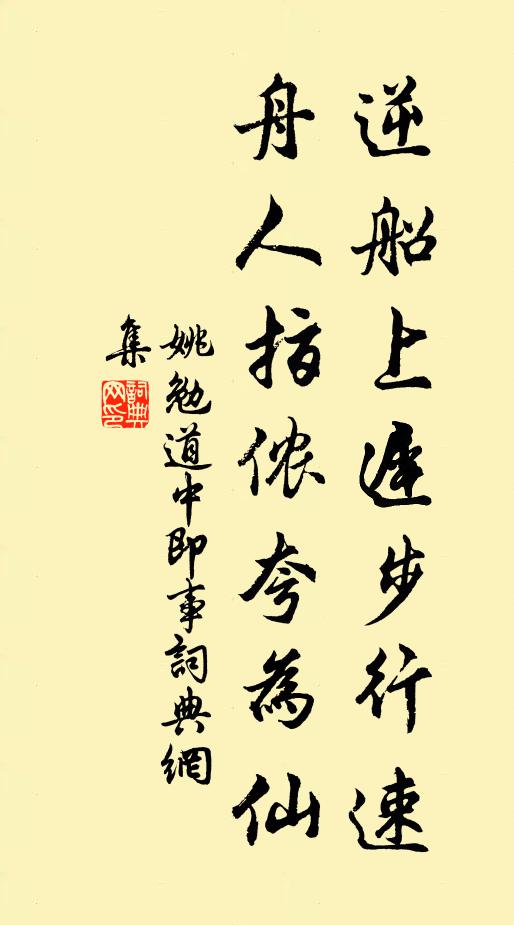 逆船上遲步行速
舟人指儂夸為仙
姚勉道中即事詞典網
集
詞典
网印